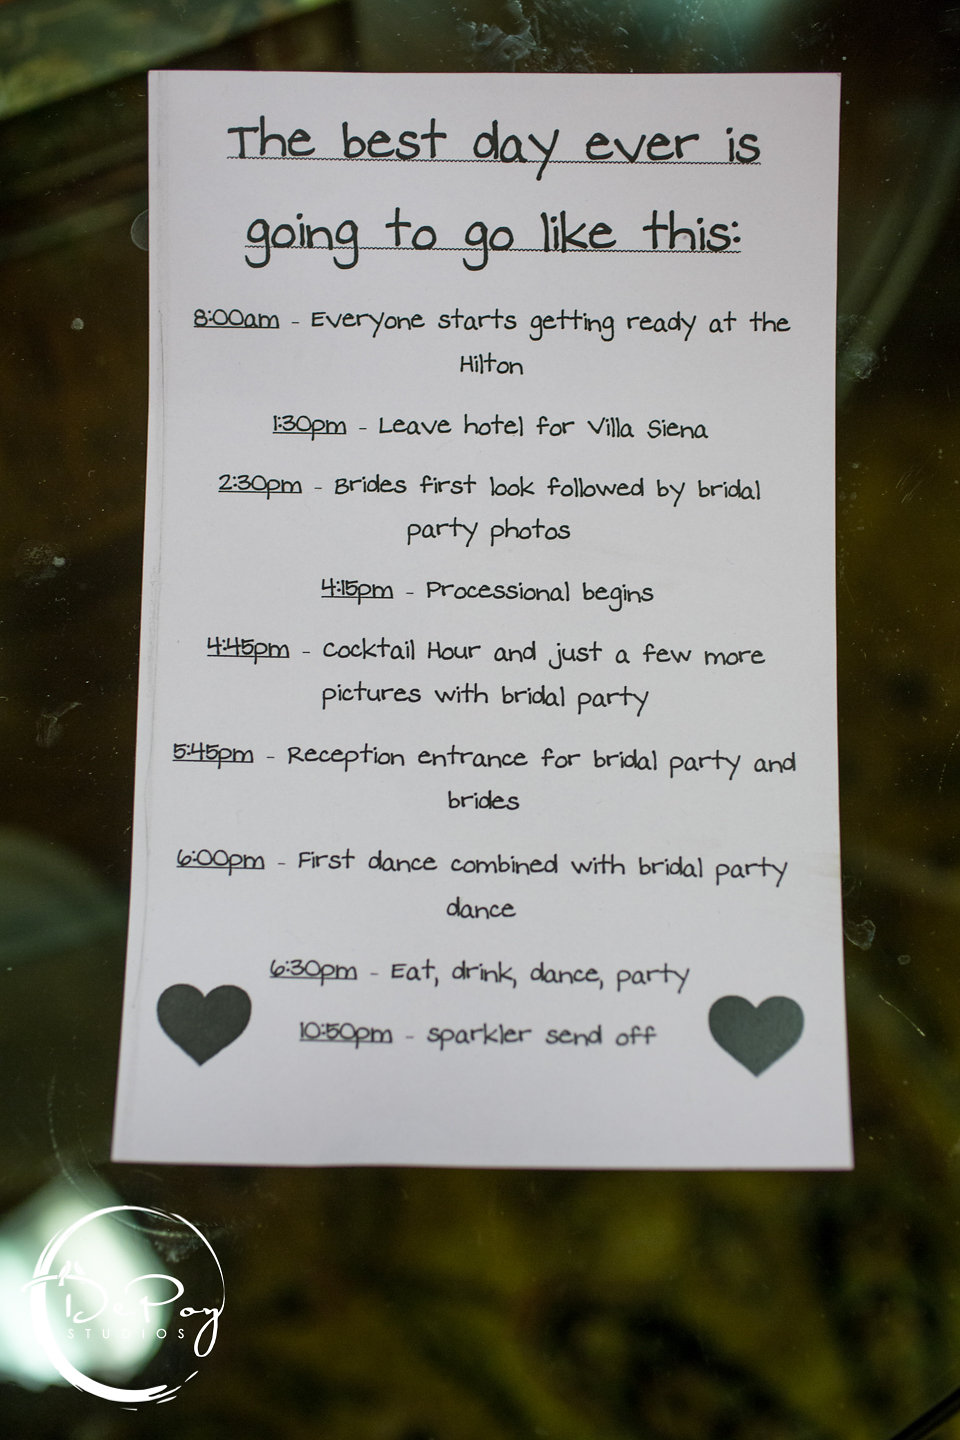 The best day ever is
going to go like this:
8:00am - Everyone starts getting ready at the
Hilton
1:30pm - Leave hotel for Villa Siena
2:30pm - Brides first look followed by bridal
party photos
4:15pm - Processional begins
4:45pm - Cocktail Hour and just a few more
pictures with bridal party
5:45pm - Reception entrance for bridal party and
brides
6:00pm - First dance combined with bridal party
dance
6:30pm - Eat, drink, dance, party
10:50pm - sparkler send off
DePoy
STUDIOS